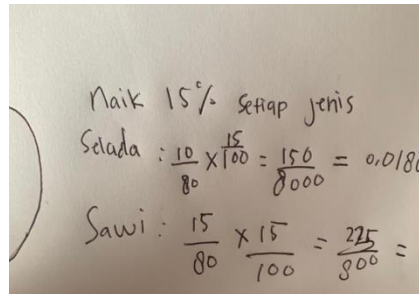 Naik 15% setiap jenis
Selada : 10/80 x 15/100 = 150/8000 = 0.0180
Sawi : 15/80 x 15/100 = 225/800 =